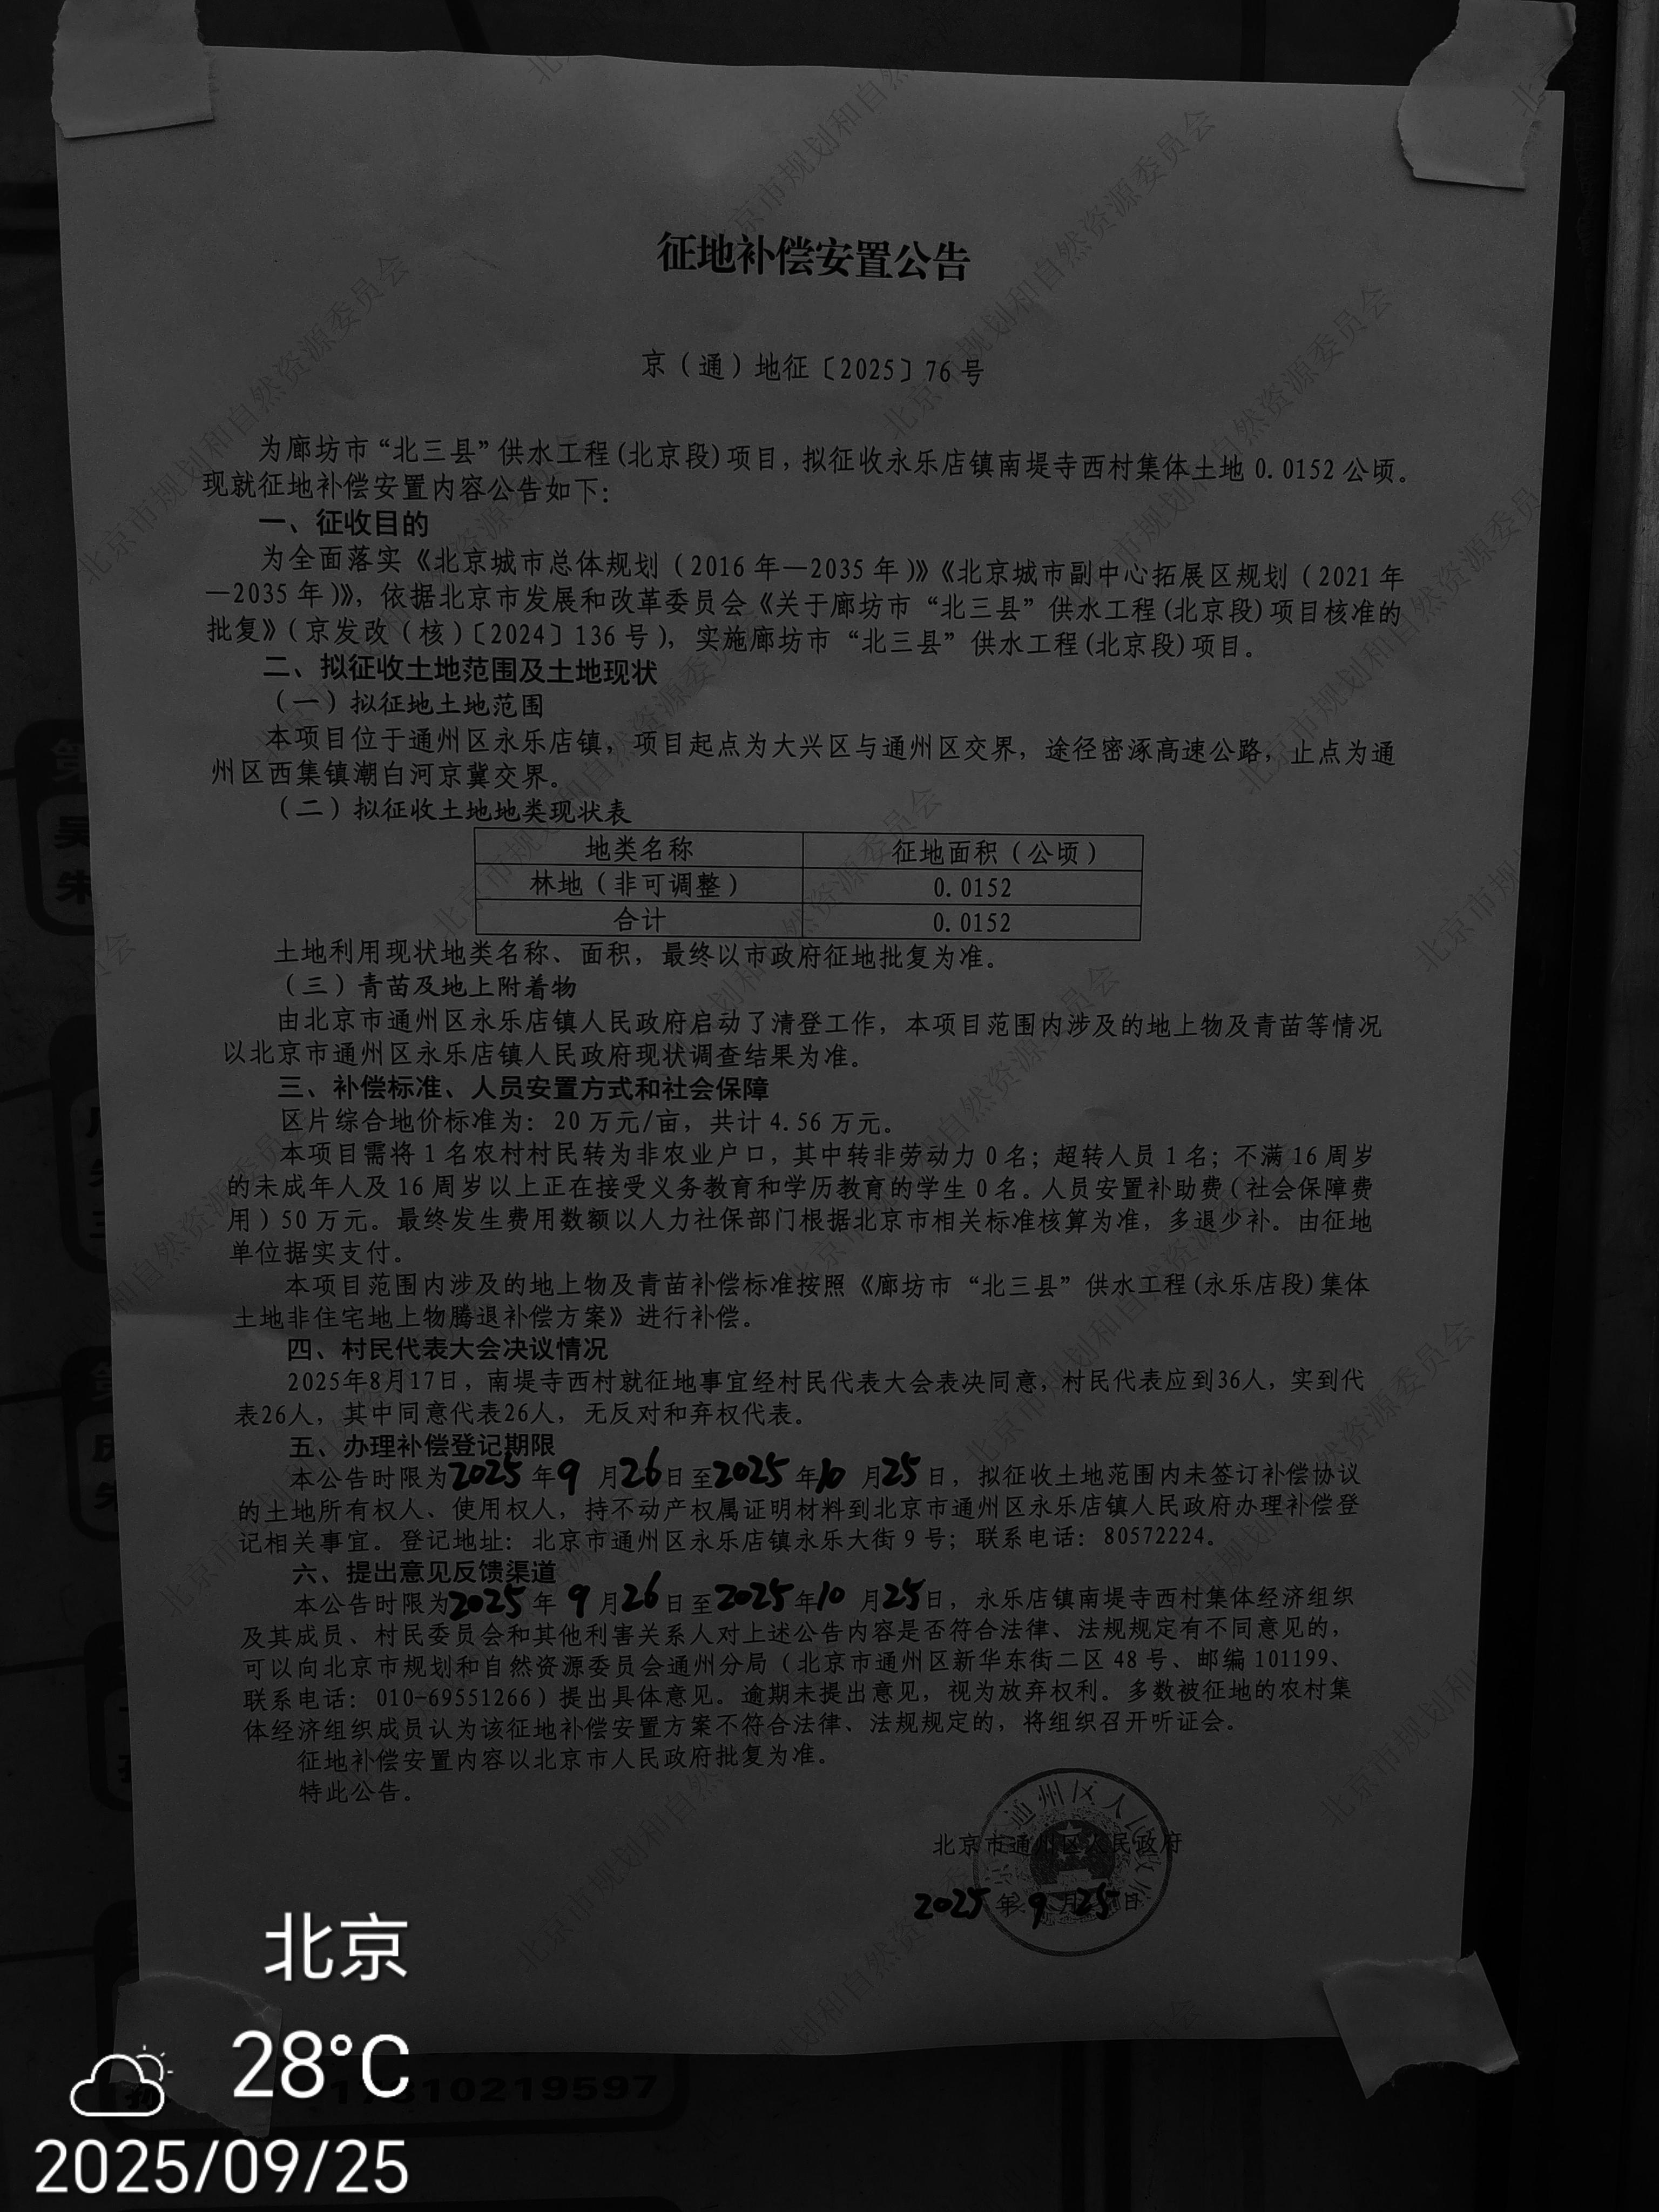 征地补偿安置公告
京（通）地征〔2025〕76 号
为廊坊市“北三县”供水工程(北京段)项目，拟征收永乐店镇南堤寺西村集体土地 0.0152 公顷。
现就征地补偿安置内容公告如下：
一、征收目的
为全面落实《北京城市总体规划（2016 年—2035 年)》《北京城市副中心拓展区规划（2021 年
—2035 年)》，依据北京市发展和改革委员会《关于廊坊市“北三县”供水工程(北京段)项目核准的
批复》（京发改（核）〔2024〕136 号），实施廊坊市“北三县”供水工程(北京段)项目。
二、拟征收土地范围及土地现状
（一）拟征地土地范围
本项目位于通州区永乐店镇，项目起点为大兴区与通州区交界，途径密涿高速公路，止点为通
州区西集镇潮白河京冀交界。
（二）拟征收土地地类现状表
地类名称 征地面积（公顷）
林地（非可调整） 0.0152
合计 0.0152
土地利用现状地类名称、面积，最终以市政府征地批复为准。
（三）青苗及地上附着物
由北京市通州区永乐店镇人民政府启动了清登工作，本项目范围内涉及的地上物及青苗等情况
以北京市通州区永乐店镇人民政府现状调查结果为准。
三、补偿标准、人员安置方式和社会保障
区片综合地价标准为：20 万元/亩，共计 4.56 万元。
本项目需将 1 名农村村民转为非农业户口，其中转非劳动力 0 名；超转人员 1 名；不满 16 周岁
的未成年人及 16 周岁以上正在接受义务教育和学历教育的学生 0 名。人员安置补助费（社会保障费
用）50 万元。最终发生费用数额以人力社保部门根据北京市相关标准核算为准，多退少补。由征地
单位据实支付。
本项目范围内涉及的地上物及青苗补偿标准按照《廊坊市“北三县”供水工程(永乐店段)集体
土地非住宅地上物腾退补偿方案》进行补偿。
四、村民代表大会决议情况
2025年8月17日，南堤寺西村就征地事宜经村民代表大会表决同意，村民代表应到36人，实到代
表26人，其中同意代表26人，无反对和弃权代表。
五、办理补偿登记期限
本公告时限为2025 年9 月26日至2025 年10 月25日，拟征收土地范围内未签订补偿协议
的土地所有权人、使用权人，持不动产权属证明材料到北京市通州区永乐店镇人民政府办理补偿登
记相关事宜。登记地址：北京市通州区永乐店镇永乐大街 9 号；联系电话：80572224。
六、提出意见反馈渠道
本公告时限为2025 年 9 月26日至2025年10 月25日，永乐店镇南堤寺西村集体经济组织
及其成员、村民委员会和其他利害关系人对上述公告内容是否符合法律、法规规定有不同意见的，
可以向北京市规划和自然资源委员会通州分局（北京市通州区新华东街二区 48 号、邮编 101199、
联系电话：010-69551266）提出具体意见。逾期未提出意见，视为放弃权利。多数被征地的农村集
体经济组织成员认为该征地补偿安置方案不符合法律、法规规定的，将组织召开听证会。
征地补偿安置内容以北京市人民政府批复为准。
特此公告。
北京市通州区人民政府
2025 年 9 月 25 日
北京
28°C
2025/09/25